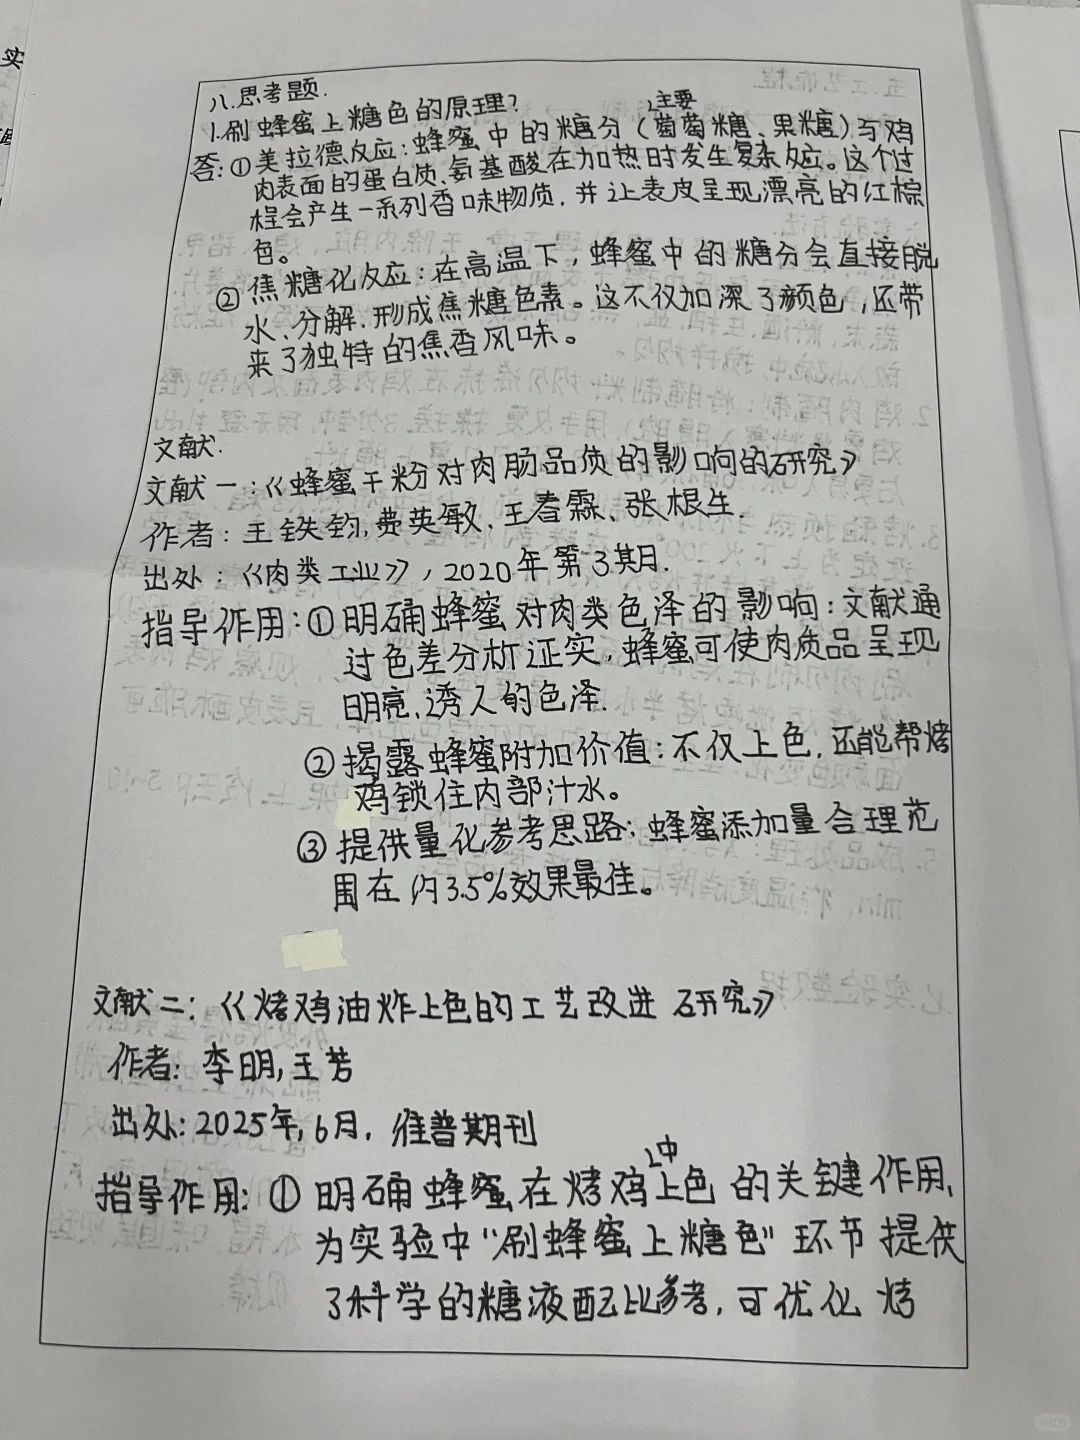 实
八.思考题.
1.刷蜂蜜上糖色的原理?
主要
答:①美拉德反应:蜂蜜中的糖分(葡萄糖、果糖)与鸡
肉表面的蛋白质、氨基酸在加热时发生复杂反应。这个过
程会产生一系列香味物质,并让表皮呈现漂亮的红棕
色。
②焦糖化反应:在高温下,蜂蜜中的糖分会直接脱
水、分解.形成焦糖色素。这不仅加深了颜色,还带
来了独特的焦香风味。
文献:
文献一:《蜂蜜干粉对肉肠品质的影响的研究》
作者:王铁钧,费英敏.王春霖、张根生.
出处:《肉类工业》,2020年第3期.
指导作用:①明确蜂蜜对肉类色泽的影响:文献通
过色差分析证实,蜂蜜可使肉质品呈现
明亮、诱人的色泽.
②揭露蜂蜜附加价值:不仅上色,还能帮烤
鸡锁住内部汁水。
③提供量化参考思路:蜂蜜添加量合理范
围在内3.5%效果最佳。
文献二:《烤鸡油炸上色的工艺改进研究》
作者:李明,王芳
出处:2025年,6月.维普期刊
中
指导作用:①明确蜂蜜在烤鸡上色的关键作用,
为实验中“刷蜂蜜上糖色”环节提供
了科学的糖液配比参考,可优化烤